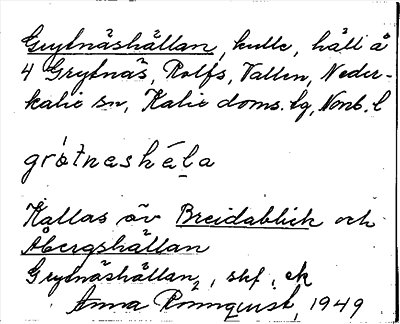 Grytnäshällan, kulle, häll å
4 Grytnäs, Rolfs, Vallen, Neder-
kalix sn, Kalix doms. lg, Norrb. l
grøtneshɛla
Kallas äv Breidablick och
Åbergshällan
Grytnäshällan, skf, ek
Anna Rönnqvist, 1949